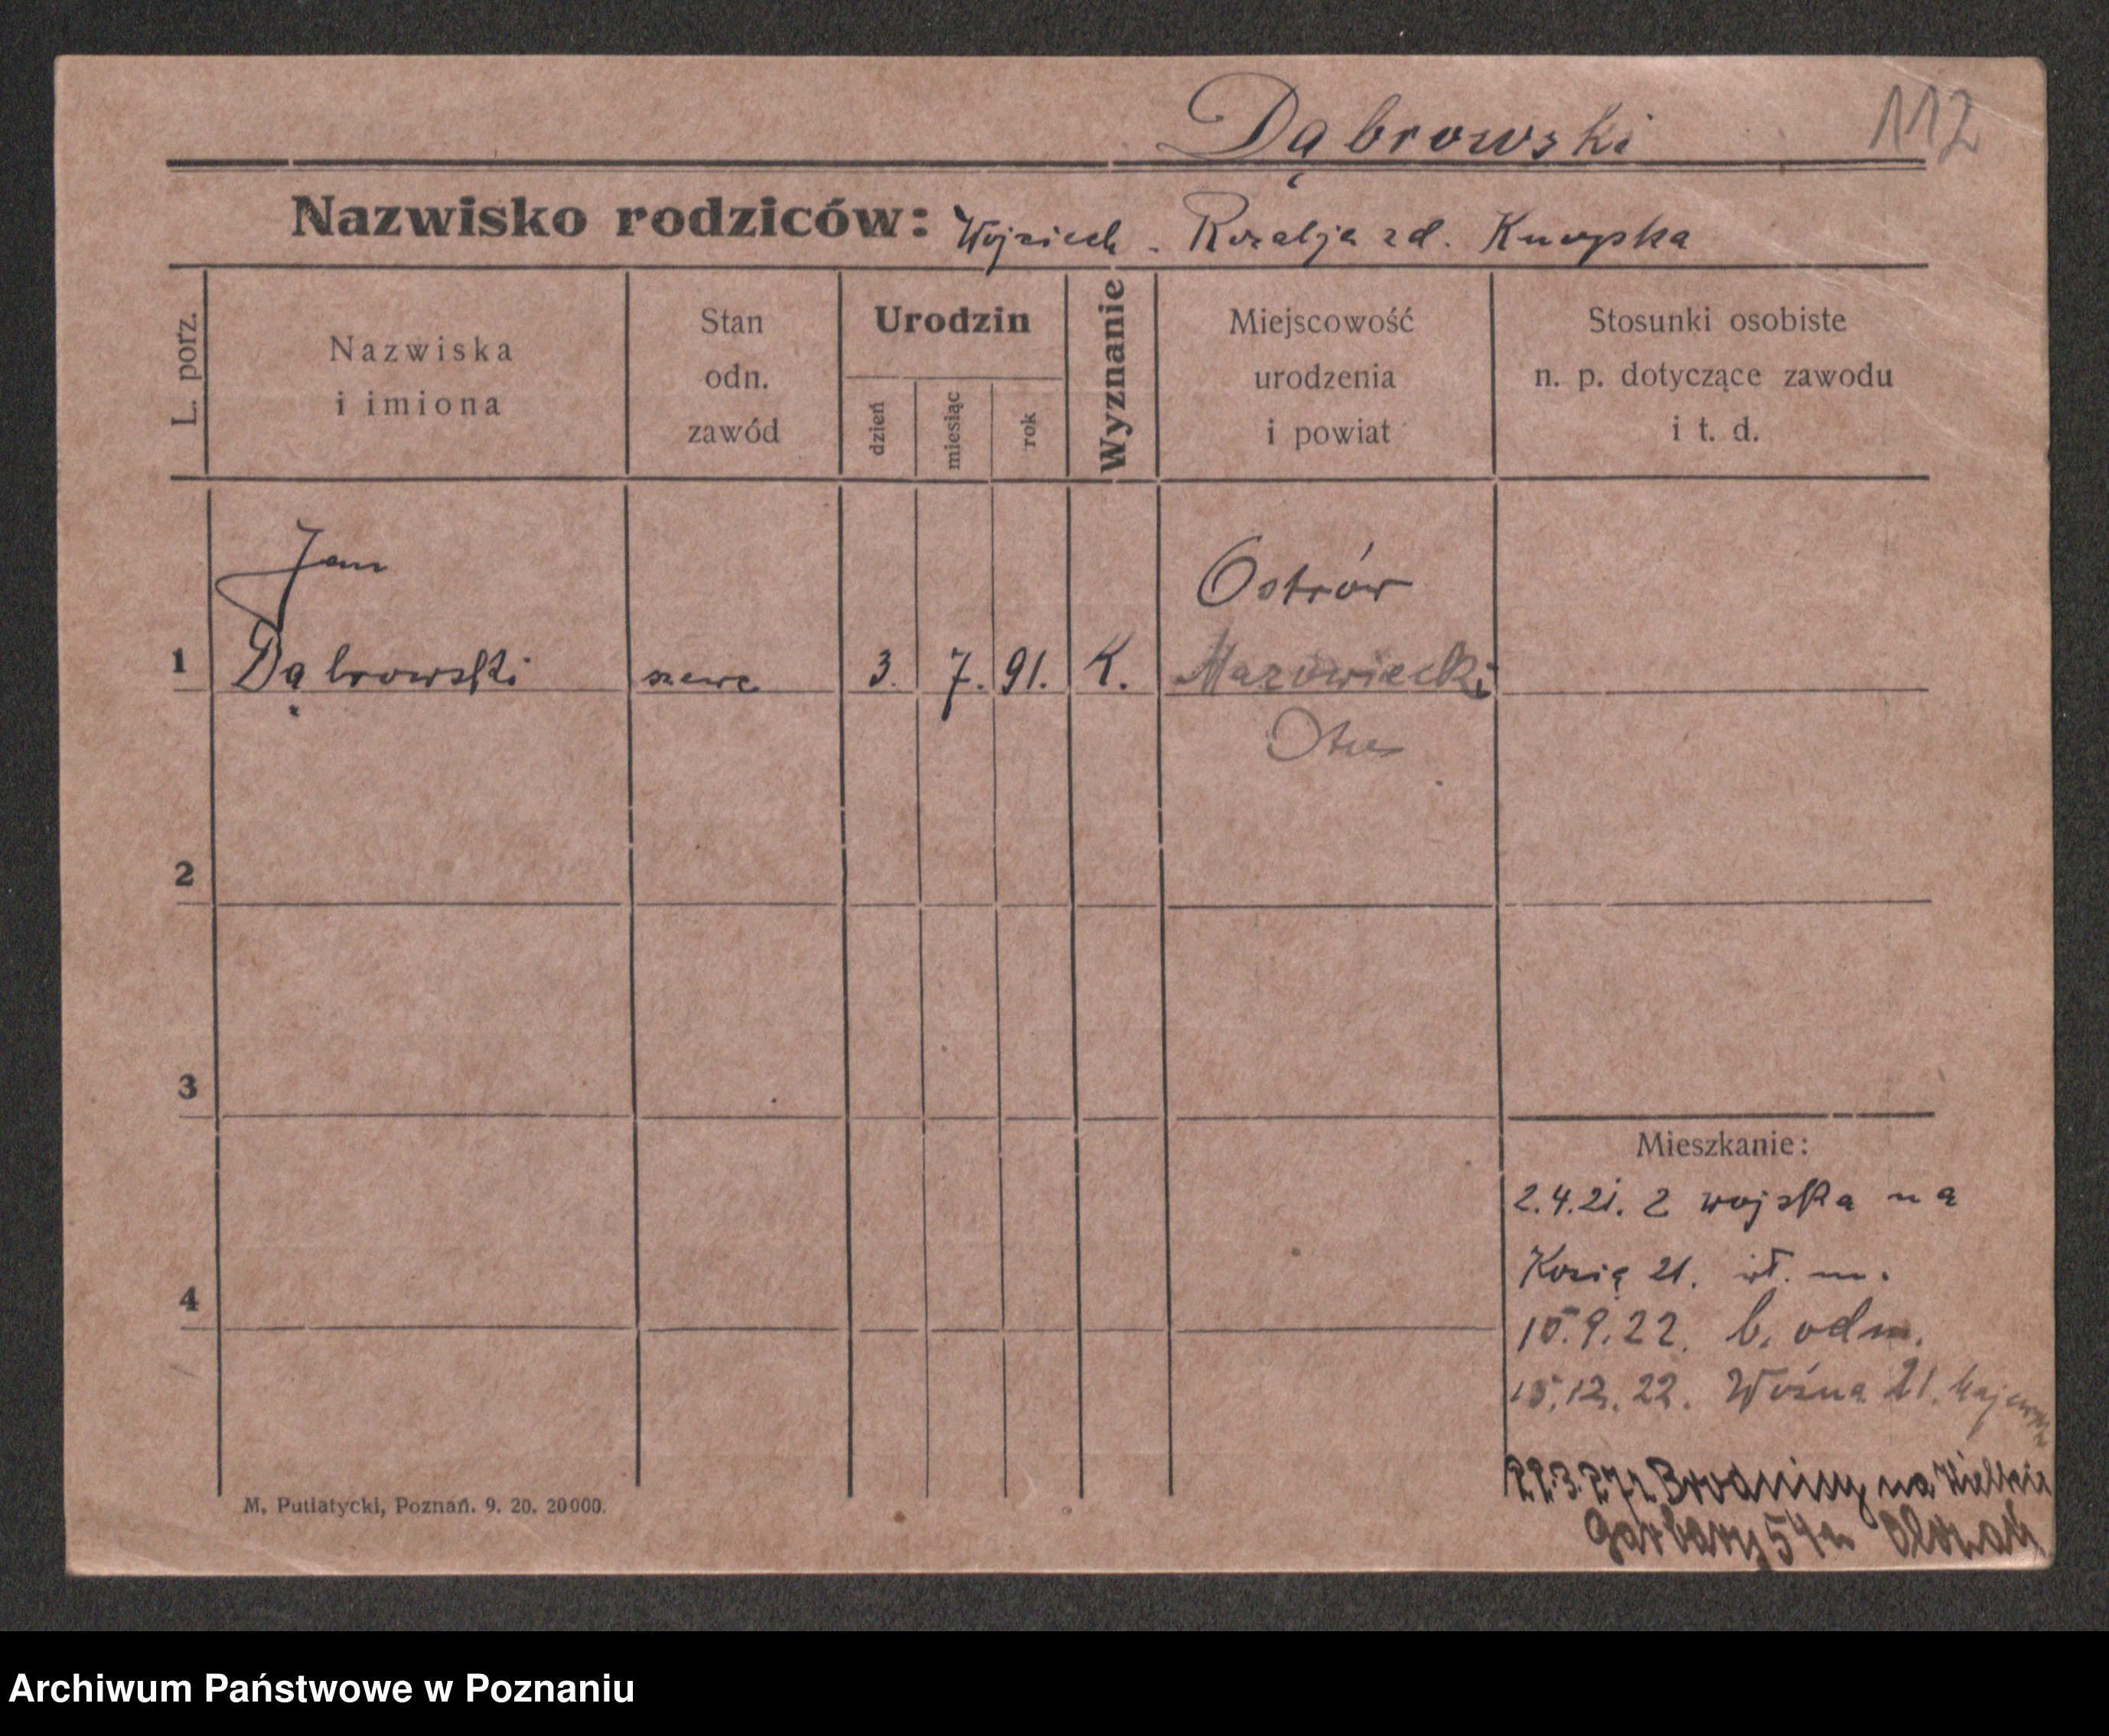 Dąbrowski
112
Nazwisko rodziców: Wojciech - Rozalja zd.
L. porz.
Nazwiska
i imiona
Stan
odn.
zawód
Urodzin
dzień
miesiąc
rok
Wyznanie
Miejscowość
urodzenia
i powiat
Stosunki osobiste
n. p. dotyczące zawodu
i t. d.
Jan
Ostrów
1 Dąbrowski szewc 3. 7. 91. K. Mazowiecki
2
3
4
Mieszkanie:
2.4.21. z wojska na
Kozią 21. wł. m.
15.9.22. b. odm.
15.12.22. Woźna 21.
22.3.27r. na Wielkie
Garbary 54a
M. Putiatycki, Poznań. 9. 20. 20000.
Archiwum Państwowe w Poznaniu